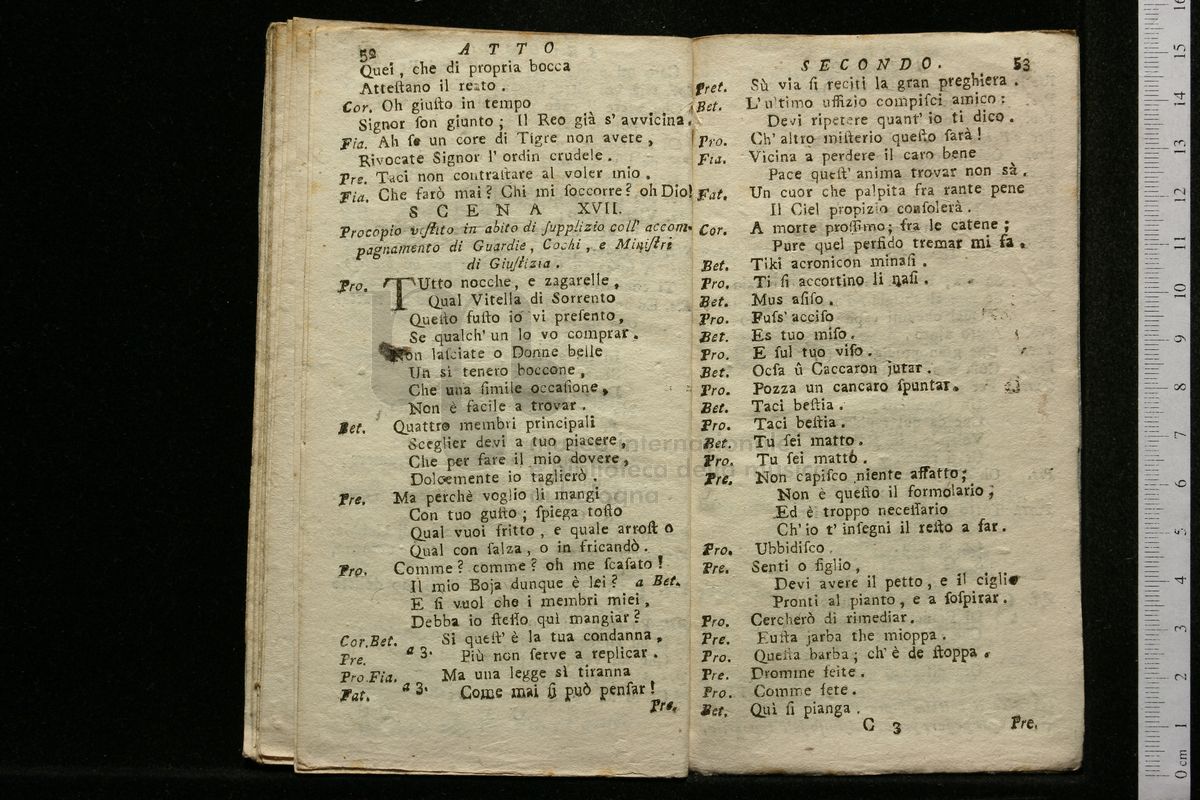 52 ATTO
Quei, che di propria bocca
Atteſtano il reato.
Cor. Oh giuſto in tempo
Signor ſon giunto; Il Reo già s' avvicina.
Fia. Ah ſe un core di Tigre non avete,
Rivocate Signor l' ordin crudele.
Pre. Taci non contraſtare al voler mio.
Fia. Che farò mai? Chi mi ſoccorre? oh Dio!
SCENA XVII.
Procopio veſtito in abito di ſupplizio coll' accom-
pagnamento di Guardie, Cochi, e Miniſtri
di Giuſtizia.
Pro. TUtto nocche, e zagarelle,
Qual Vitella di Sorrento
Queſto fuſto io vi preſento,
Se qualch' un lo vo comprar.
Non laſciate o Donne belle
Un sì tenero boccone,
Che una ſimile occaſione,
Non è facile a trovar.
Bet. Quattro membri principali
Sceglier devi a tuo piacere,
Che per fare il mio dovere,
Dolcemente io taglierò.
Pre. Ma perchè voglio li mangi
Con tuo guſto; ſpiega toſto
Qual vuoi fritto, e quale arroſto
Qual con ſalza, o in fricandò.
Pro. Comme? comme? oh me ſcaſato!
Il mio Boja dunque è lei? a Bet.
E ſi vuol che i membri miei,
Debba io ſteſſo quì mangiar?
Cor.Bet. Sì queſt' è la tua condanna,
Pre. a 3. Più non ſerve a replicar.
Pro.Fia. Ma una legge sì tiranna
Fat. a 3. Come mai ſi può penſar!
Pre.
SECONDO. 53
Pret. Sù via ſi reciti la gran preghiera.
Bet. L' ultimo uffizio compiſci amico:
Devi ripetere quant' io ti dico.
Pro. Ch' altro miſterio queſto ſarà!
Fia. Vicina a perdere il caro bene
Pace queſt' anima trovar non sà.
Fat. Un cuor che palpita fra rante pene
Il Ciel propizio conſolerà.
Cor. A morte proſſimo; fra le catene;
Pure quel perfido tremar mi fa.
Bet. Tiki acronicon minaſi.
Pro. Ti ſi accortino li naſi.
Bet. Mus aſiſo.
Pro. Fuſs' acciſo
Bet. Es tuo miſo.
Pro. E ſul tuo viſo.
Bet. Ocſa û Caccaron jutar.
Pro. Pozza un cancaro ſpuntar.
Bet. Taci beſtia.
Pro. Taci beſtia.
Bet. Tu ſei matto.
Pro. Tu ſei matto.
Pre. Non capiſco niente affatto;
Non è queſto il formolario;
Ed è troppo neceſſario
Ch' io t' inſegni il reſto a far.
Pro. Ubbidiſco.
Pre. Senti o figlio,
Devi avere il petto, e il ciglio
Pronti al pianto, e a ſoſpirar.
Pro. Cercherò di rimediar.
Pre. Euſta jarba the mioppa.
Pro. Queſta barba; ch' è de ſtoppa.
Pre. Dromine ſeite.
Pro. Comme ſete.
Bet. Quì ſi pianga.
C 3 Pre.